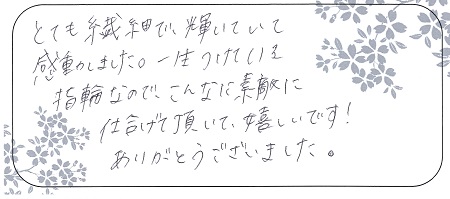 とても繊細で、輝いていて
感動しました。一生つけている
指輪なので、こんなに素敵に
仕合げて頂いて、嬉しいです!
ありがとうございました。